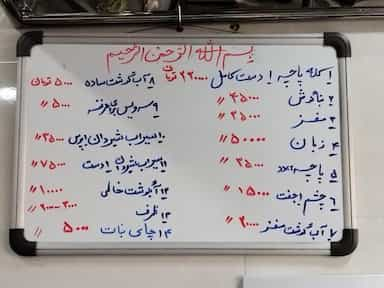 بسم الله الرحمن الرحیم
۱ کله پاچه ۱ دست کامل ۲۲۰۰۰۰ تومان
۲ بناگوش ۴۵۰۰۰ //
۳ مغز ۲۵۰۰۰ //
۴ زبان ۵۰۰۰۰ //
۵ پاچه ۲۵۰۰۰ //
۶ چشم ۱ جفت ۱۵۰۰۰ //
۷ آب گوشت مغز ۲۰۰۰۰ //
۸ آب گوشت ساده ۵۰۰۰ تومان
۹ سرویس برای هر نفر ۵۰۰۰ //
۱۰ سیراب شیردان ۲۵۰۰۰ //
۱۱ سیراب شیردان ۱ دست ۷۵۰۰۰ //
۱۲ آبگوشت خالی ۱۰۰۰۰ //
۱۳ ظرف
۱۴ چای نبات ۵۰۰۰ //